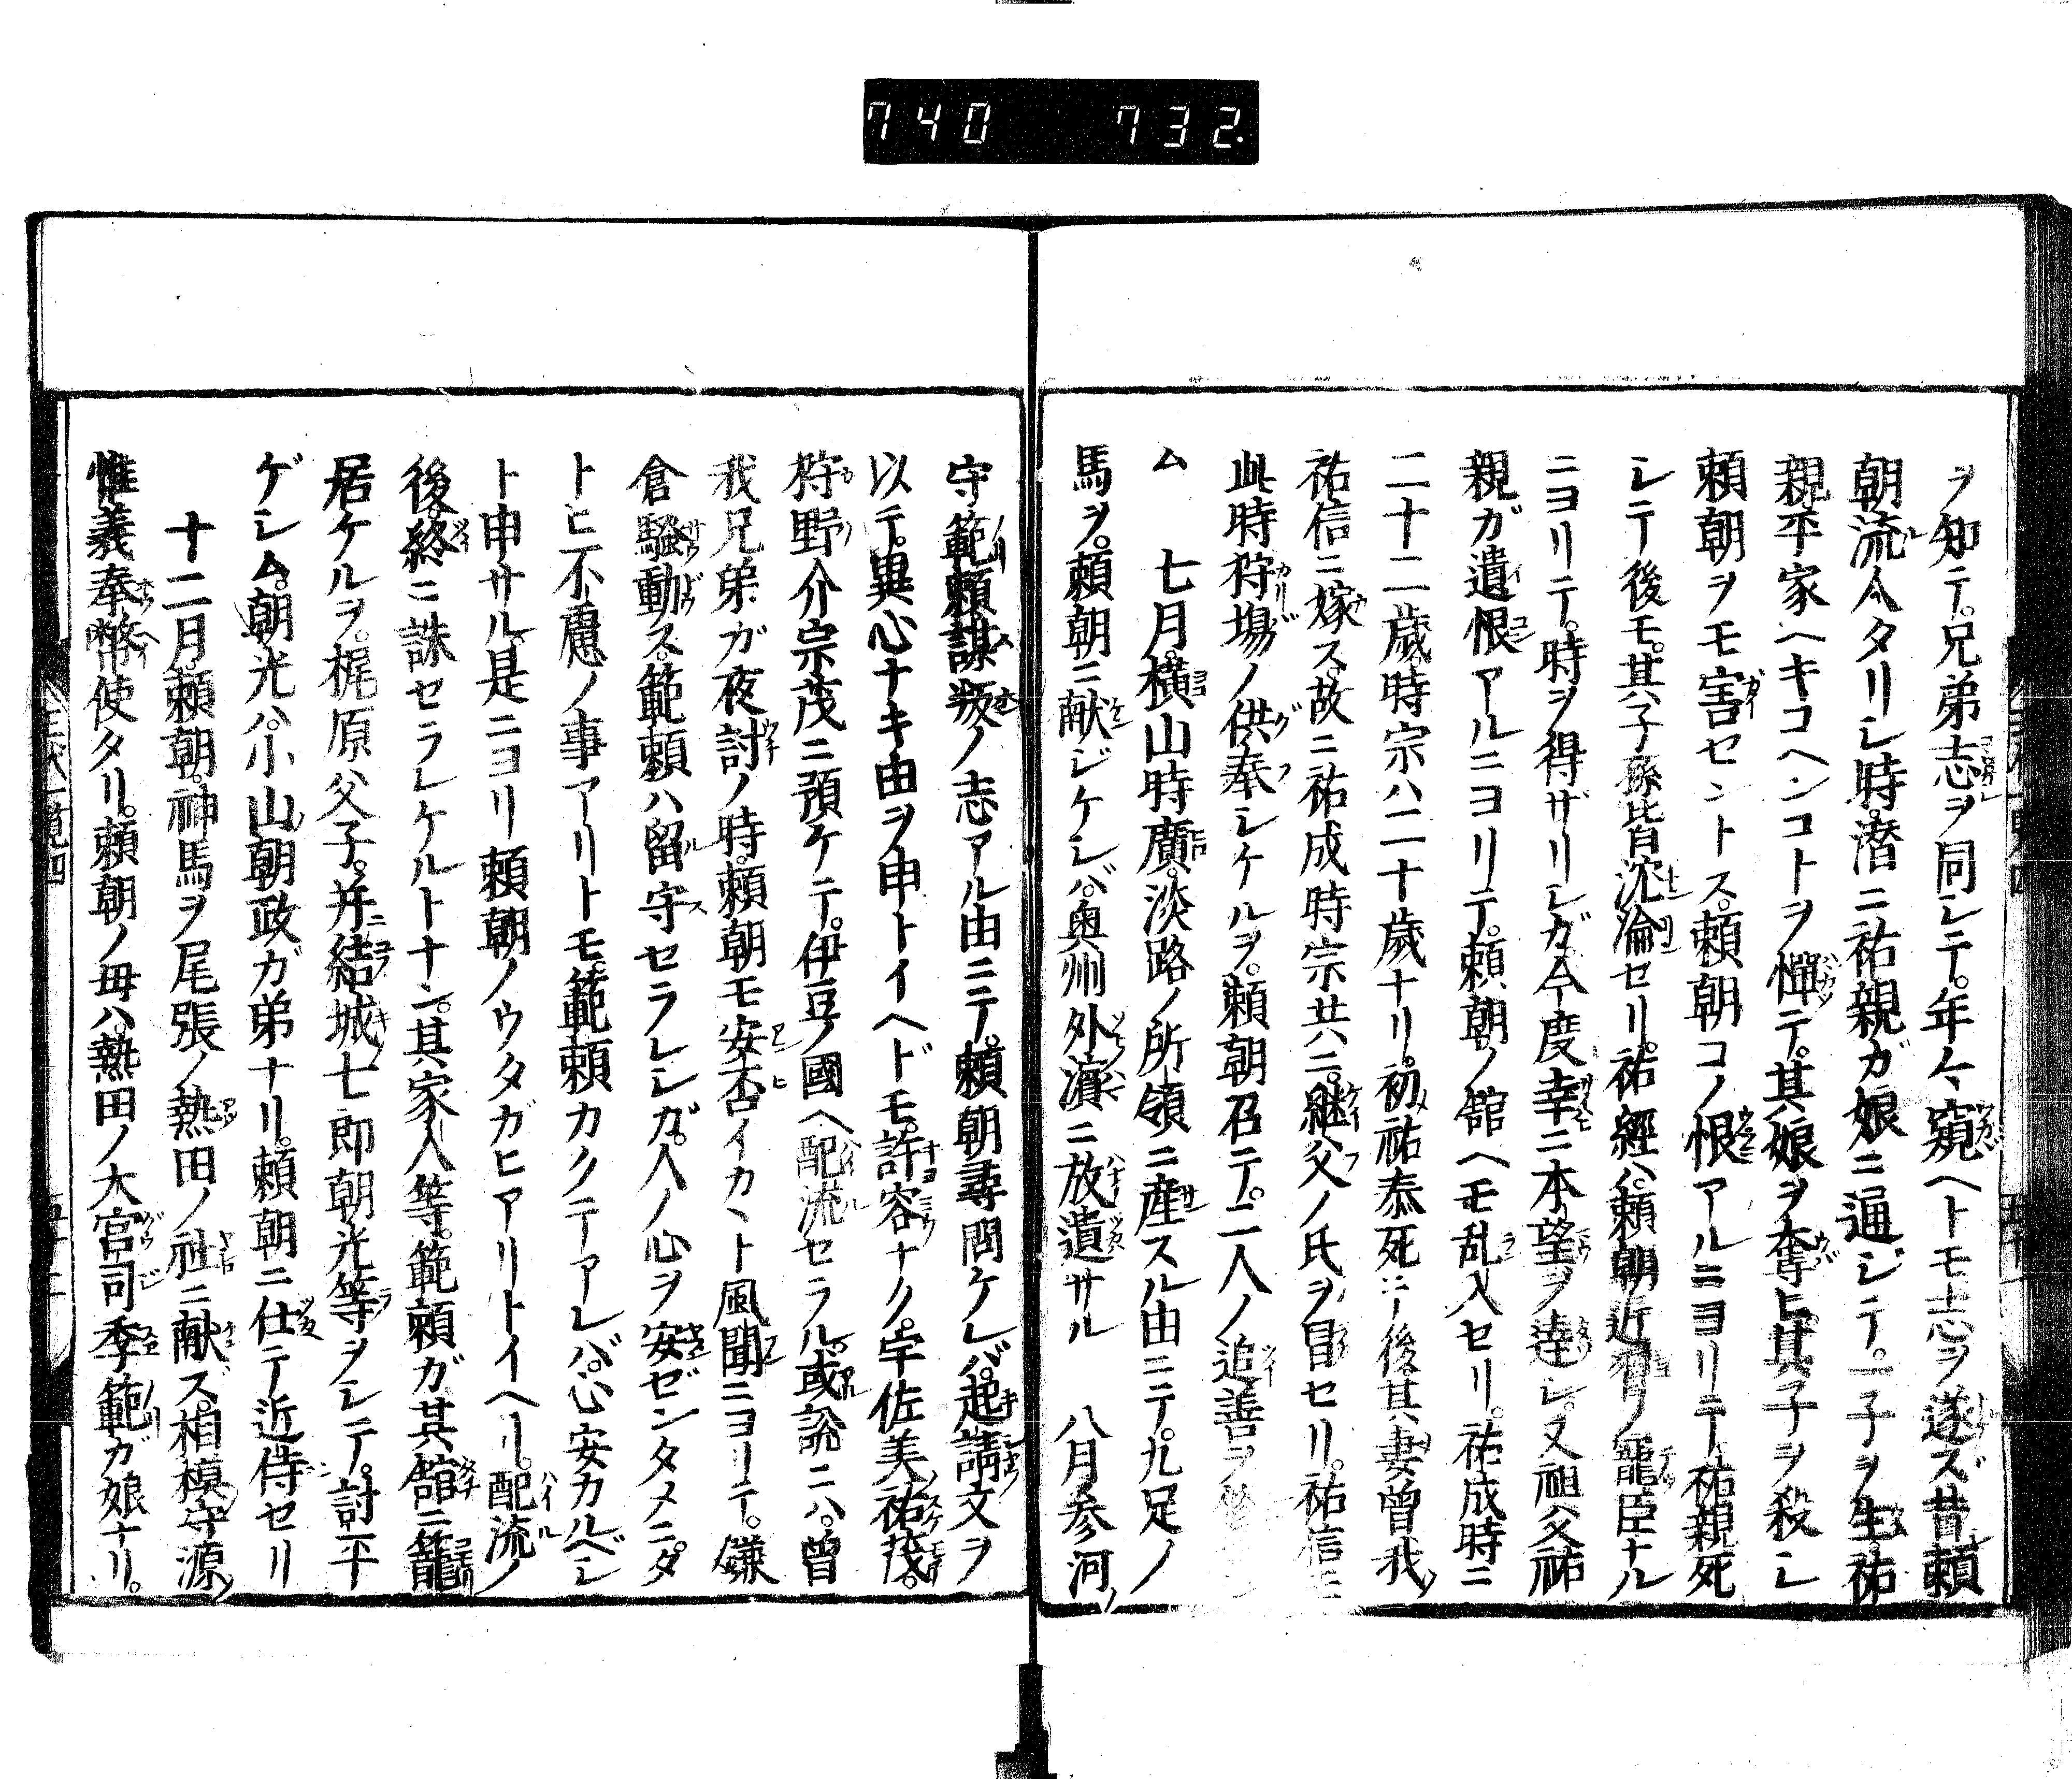 740 732.
ヲ知テ。兄弟志ヲ同シテ。年々窺ヘトモ志ヲ遂ズ昔頼
朝流人タリシ時。潜ニ祐親ガ娘ニ通ジテ。一子ヲ生。祐
親平家ヘキコヘンコトヲ憚テ。其娘ヲ奪ヒ其子ヲ殺シ
頼朝ヲモ害セントス。頼朝コノ恨アルニヨリテ祐親死
シテ後モ。其子孫皆沈淪セリ。祐經ハ。頼朝近習ノ寵臣ナル
ニヨリテ。時ヲ得ザリシガ。今度幸ニ本望ヲ達シ。又祖父祐
親ガ遺恨アルニヨリテ。頼朝ノ舘ヘモ乱入セリ。祐成時ニ
二十二歳時宗ハ二十歳ナリ。初祐泰死シテ後。其妻曽我ノ
祐信ニ嫁ス。故ニ祐成時宗共ニ。継父ノ氏ヲ冒セリ。祐信ニ
此時狩場ノ供奉シケルヲ。頼朝召テ。二人ノ追善ヲ
ム　七月。横山時廣。淡路ノ所領ニ産スル由ニテ。九足ノ
馬ヲ。頼朝ニ献ジケレバ。奥州外濱ニ放遣サル　八月参河ノ
守範頼謀叛ノ志アル由ニテ。頼朝尋問ケレバ。起請文ヲ
以テ。異心ナキ由ヲ申トイヘドモ。許容ナク。宇佐美祐茂。
狩野介宗茂ニ預ケテ。伊豆ノ國ヘ配流セラル。或説ニハ。曽
我兄弟ガ夜討ノ時。頼朝モ安否イカヽト風聞ニヨリテ。鎌
倉騒動ス。範頼ハ留守セラレシガ。人ノ心ヲ安ゼンタメニ。タ
トヒ不慮ノ事アリトモ。範頼カクテアレバ。心安カルベシ
ト申サル。是ニヨリ頼朝ノウタガヒアリトイヘリ。配流ノ
後。終ニ誅セラレケルトナン。其家人等。範頼ガ其舘ニ籠
居ケルヲ。梶原父子。并結城七郎朝光等ヲシテ。討平
ゲシム。朝光ハ。小山朝政ガ弟ナリ。頼朝ニ仕テ近侍セリ
十二月。頼朝。神馬ヲ尾張ノ熱田ノ社ニ献ズ。相模守源ノ
惟義奉幣使タリ。頼朝ノ母ハ。熱田ノ大宮司季範ガ娘ナリ。